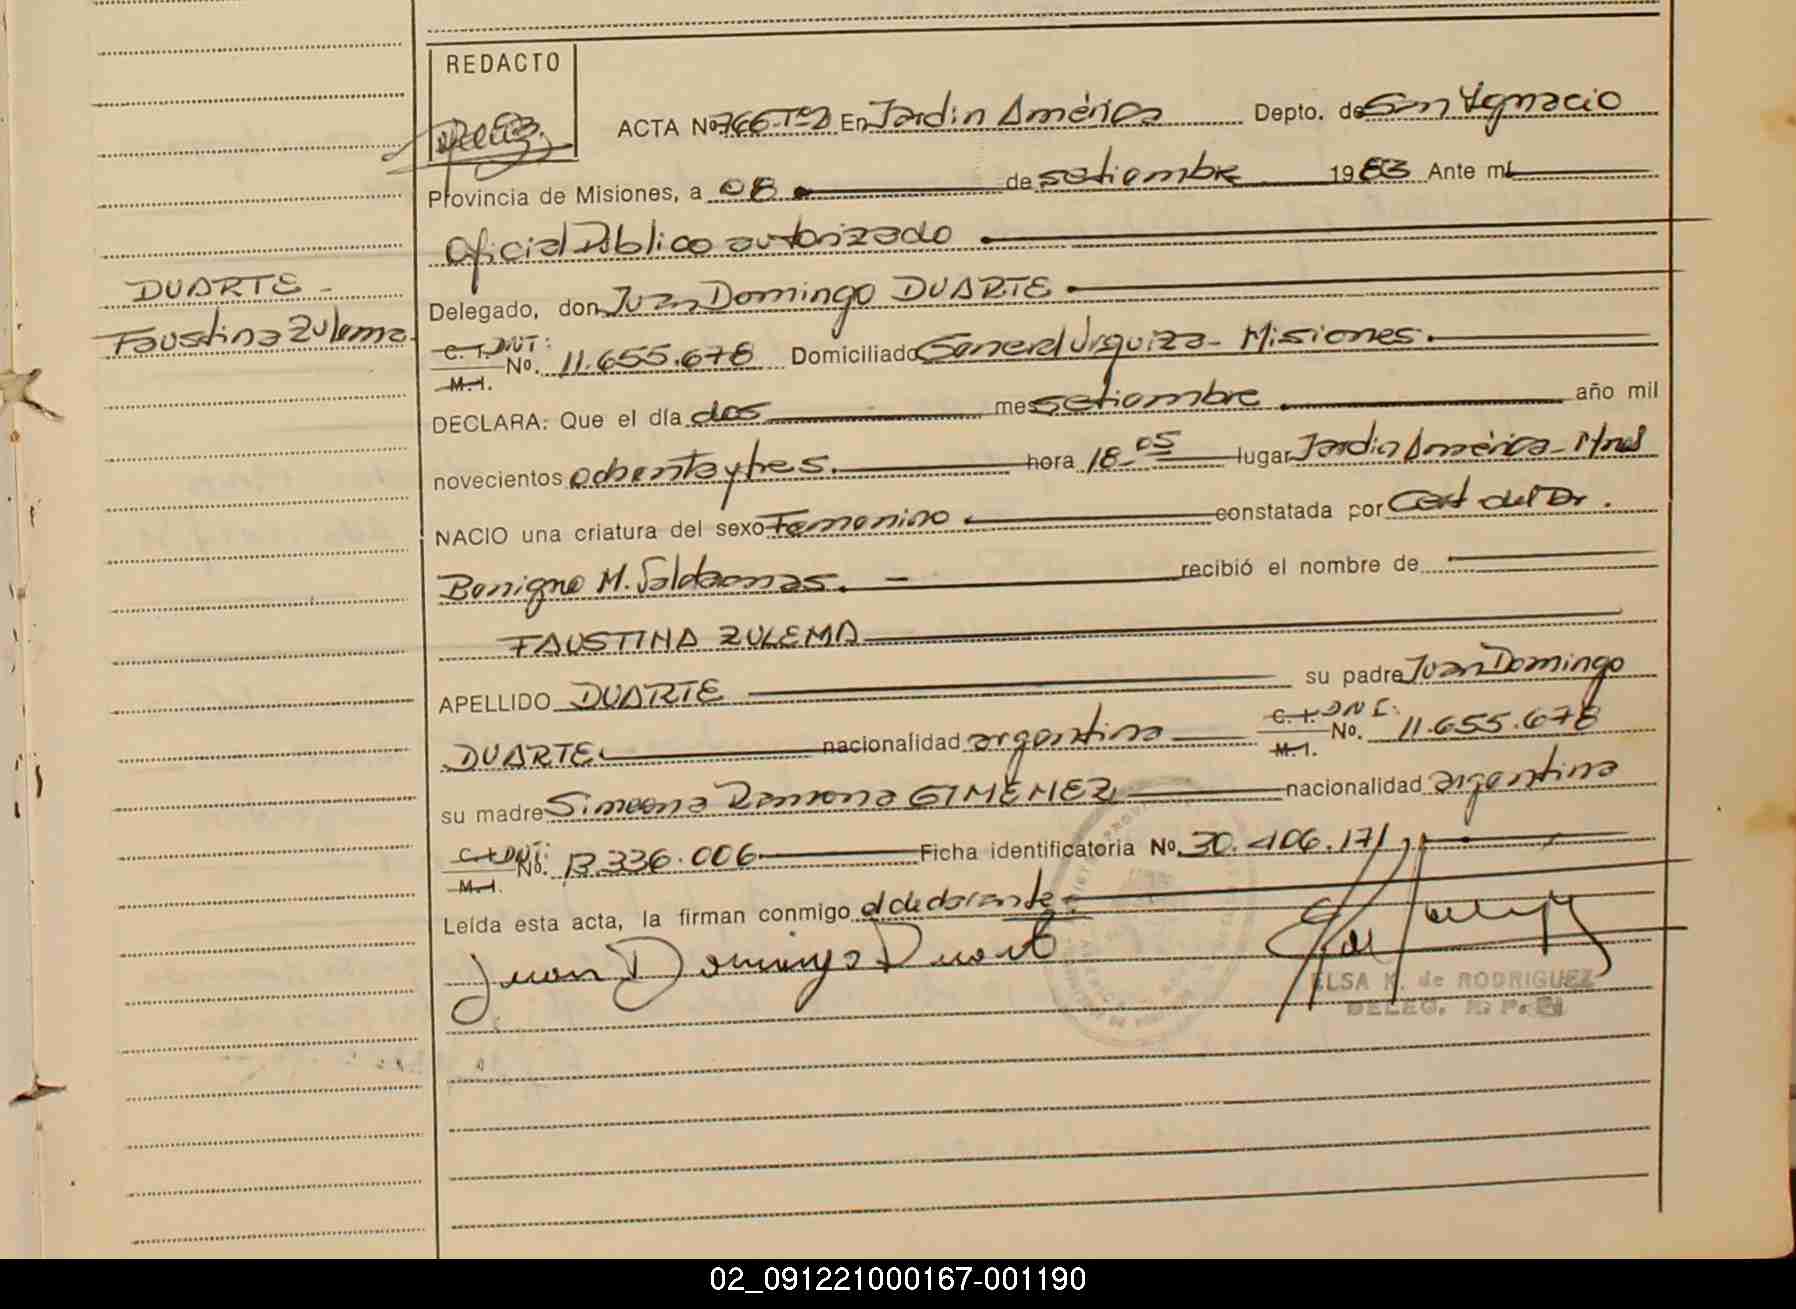 REDACTO
ACTA No 766-Tº2 En Jardin América Depto. de San Ignacio
Provincia de Misiones, a 08 de setiembre 1983 Ante mí
Oficial Público autorizado
DUARTE -
Faustina Zulema
Delegado, don Juan Domingo DUARTE
C. I. DNI:
No. 11.655.678 Domiciliado General Urquiza - Misiones.
M. I.
DECLARA: Que el día dos mes setiembre año mil
novecientos ochenta y tres. hora 18-05 lugar Jardin América - Mnes
NACIO una criatura del sexo Femenino constatada por Cert del Dr.
Benigno M. recibió el nombre de
FAUSTINA ZULEMA
APELLIDO DUARTE su padre Juan Domingo
DUARTE nacionalidad argentina C. I. DNI: No. 11.655.678
M. I.
su madre Simeona Ramona GIMENEZ nacionalidad argentina
C. I. DNI: No. 13.336.006 Ficha identificatoria No. 30.406.171
M. I.
Leída esta acta, la firman conmigo el declarante.
Juan Domingo Duarte
ELSA K. de RODRIGUEZ
DELEG. R. P.
02_091221000167-001190